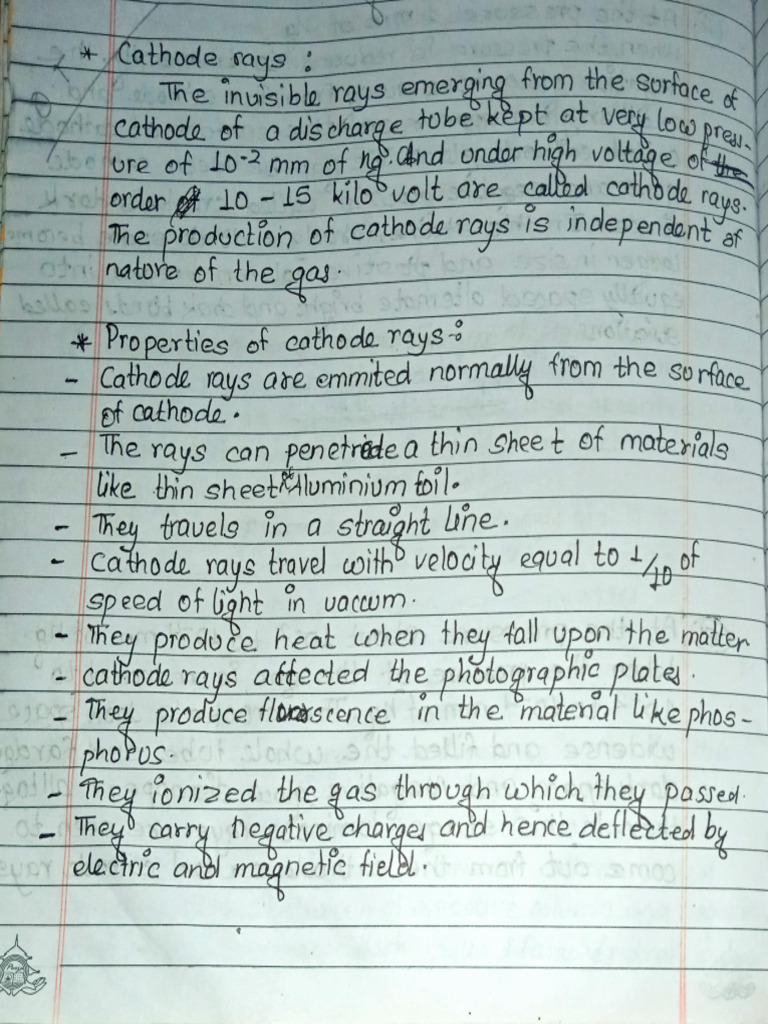 * Cathode rays :
The invisible rays emerging from the surface of
cathode of a discharge tube kept at very low press-
ure of 10-2 mm of Hg. And under high voltage of the
order of 10 - 15 kilo volt are called cathode rays.
The production of cathode rays is independent of
nature of the gas.
* Properties of cathode rays :
- Cathode rays are emmited normally from the surface
of cathode.
- The rays can penetrate a thin sheet of materials
like thin sheet of Aluminium foil.
- They travels in a straight line.
- Cathode rays travel with velocity equal to 1/10 of
speed of light in vaccum.
- They produce heat when they fall upon the matter
- cathode rays affected the photographic plates.
- They produce florescence in the material like phos-
phorus.
- They ionized the gas through which they passed.
- They carry negative charge, and hence deflected by
electric and magnetic field.